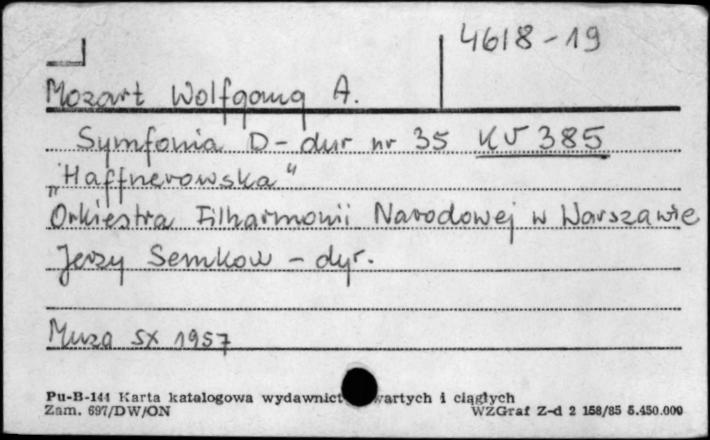 4618-19
Mozart Wolfgang A.
Symfonia D-dur nr 35 KV 385
„Haffnerowska"
Orkiestra Filharmonii Narodowej w Warszawie
Jerzy Semkow - dyr.
Muza SX 1957
Pu-B-144 Karta katalogowa wydawnict wartych i ciągłych
Zam. 697/DW/ON WZGraf Z-d 2 158/85 5.450.000